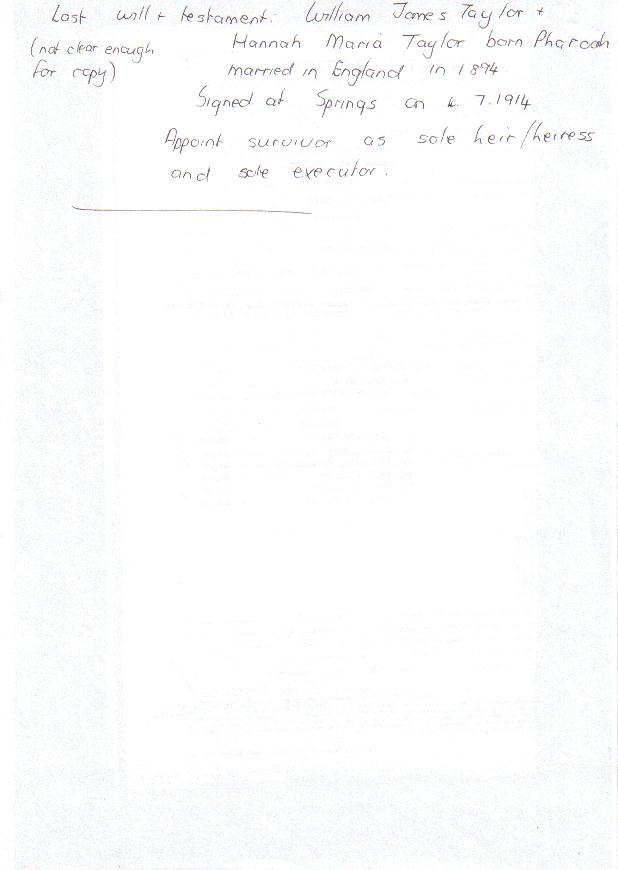 Last will + testament: William James Taylor +
(not clear enough Hannah Maria Taylor born Pharoah
for copy) married in England in 1894
Signed at Springs on 7.1914
Appoint survivor as sole heir/heiress
and sole executor.